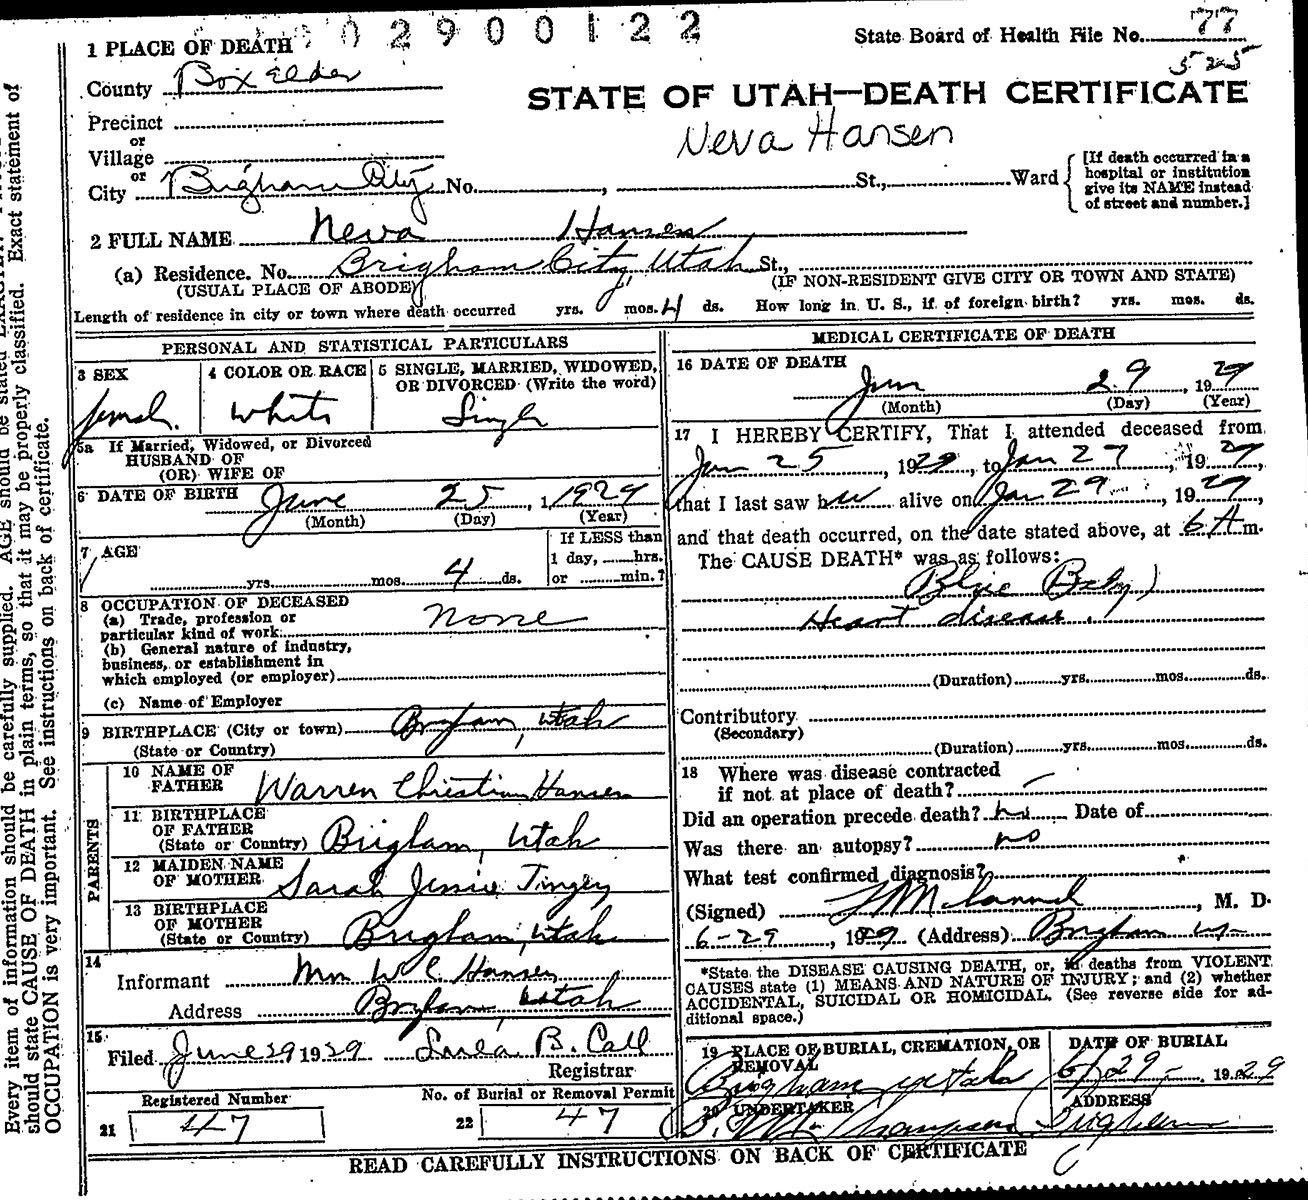 02900122
State Board of Health File No. 77
525
1 PLACE OF DEATH
County Box Elder
STATE OF UTAH—DEATH CERTIFICATE
Precinct
Neva Hansen
or
Village
or
City Brigham City No. , St., Ward
[If death occurred in a hospital or institution give its NAME instead of street and number.]
2 FULL NAME Neva Hansen
(a) Residence. No. Brigham City, Utah St.,
(USUAL PLACE OF ABODE) (IF NON-RESIDENT GIVE CITY OR TOWN AND STATE)
Length of residence in city or town where death occurred yrs. mos. 4 ds. How long in U. S., if of foreign birth? yrs. mos. ds.
PERSONAL AND STATISTICAL PARTICULARS
3 SEX
Female
4 COLOR OR RACE
White
5 SINGLE, MARRIED, WIDOWED, OR DIVORCED (Write the word)
Single
5a If Married, Widowed, or Divorced
HUSBAND OF
(OR) WIFE OF
6 DATE OF BIRTH June 25, 1929
(Month) (Day) (Year)
7 AGE
yrs. mos. 4 ds.
If LESS than
1 day, hrs.
or min.?
8 OCCUPATION OF DECEASED
(a) Trade, profession or
particular kind of work None
(b) General nature of industry,
business, or establishment in
which employed (or employer)
(c) Name of Employer
9 BIRTHPLACE (City or town) Brigham, Utah
(State or Country)
PARENTS
10 NAME OF FATHER Warren Christian Hansen
11 BIRTHPLACE OF FATHER
(State or Country) Brigham, Utah
12 MAIDEN NAME OF MOTHER Sarah Jessie Tingey
13 BIRTHPLACE OF MOTHER
(State or Country) Brigham, Utah
14
Informant Mrs W C Hansen
Address Brigham, Utah
15
Filed June 29 1929 B. Call
Registrar
Registered Number
21 47
No. of Burial or Removal Permit
22 47
MEDICAL CERTIFICATE OF DEATH
16 DATE OF DEATH
Jun 29, 1929
(Month) (Day) (Year)
17 I HEREBY CERTIFY, That I attended deceased from
Jun 25, 1929, to Jun 29, 1929,
that I last saw her alive on Jun 29, 1929,
and that death occurred, on the date stated above, at 6 A m.
The CAUSE DEATH* was as follows:
Blue Baby)
Heart disease.
(Duration) yrs. mos. ds.
Contributory
(Secondary)
(Duration) yrs. mos. ds.
18 Where was disease contracted
if not at place of death? —
Did an operation precede death? no Date of
Was there an autopsy? no
What test confirmed diagnosis?
(Signed) , M. D.
6-29, 1929 (Address) Brigham
*State the DISEASE CAUSING DEATH, or, in deaths from VIOLENT
CAUSES state (1) MEANS AND NATURE OF INJURY; and (2) whether
ACCIDENTAL, SUICIDAL OR HOMICIDAL. (See reverse side for ad-
ditional space.)
19 PLACE OF BURIAL, CREMATION, OR REMOVAL
Brigham Utah
DATE OF BURIAL
6/29- 1929
20 UNDERTAKER
ADDRESS
Brigham
READ CAREFULLY INSTRUCTIONS ON BACK OF CERTIFICATE
Every item of information should be carefully supplied. AGE should be stated
should state CAUSE OF DEATH in plain terms, so that it may be properly classified. Exact statement of
OCCUPATION is very important. See instructions on back of certificate.